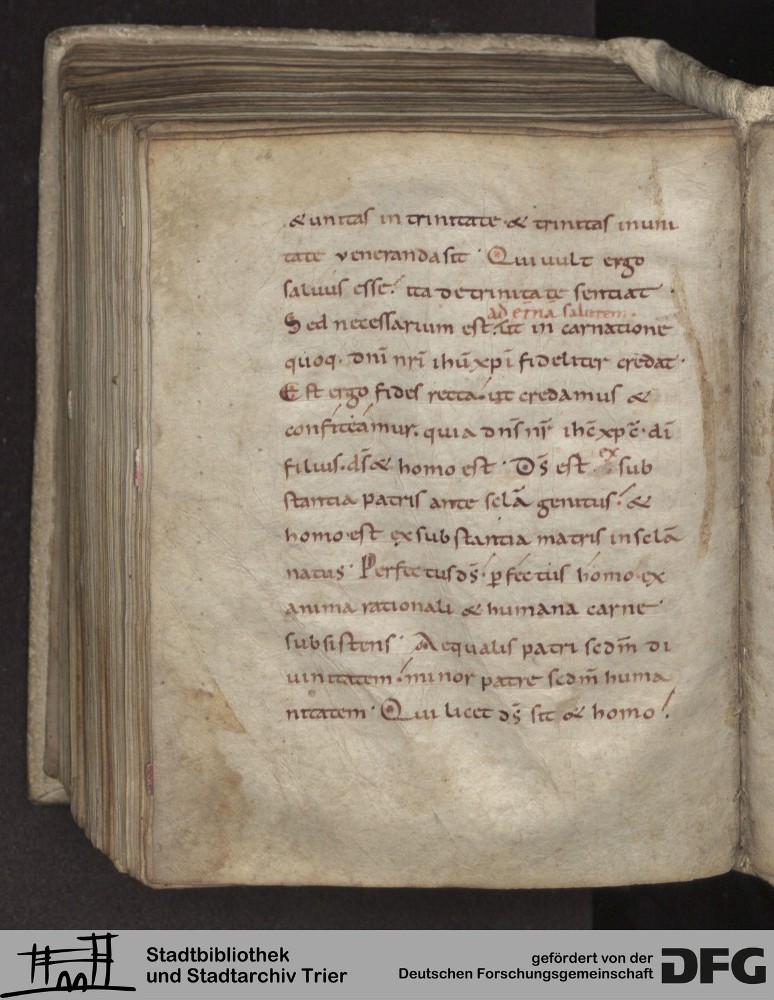 & unitas in trinitate · & trinitas in uni
tate veneranda sit · Qui uult ergo
saluus esse · ita de trinitate sentiat ·
ad etn̄a salutem ·
Sed necessarium est · ut in carnatione
quoq· dn̄i nr̄i ihū xp̄i fideliter credat ·
Est ergo fides recta · ut credamus &
confiteamur · quia dn̄s nr̄ ihc̄ xpc̄ · dī
filius · ds̄ & homo est · Ds̄ est ex sub
stantia patris ante sclā genitus · &
homo est ex substantia matris in sclā
natus · Perfectus ds̄ · ꝑfectus homo · ex
anima rationali & humana carne
subsistens · Aequalis patri sedm̄ di
uinitatem · minor patre sedm̄ huma
nitatem · Qui licet ds̄ sit & homo ·
Stadtbibliothek
und Stadtarchiv Trier
gefördert von der
Deutschen Forschungsgemeinschaft
DFG